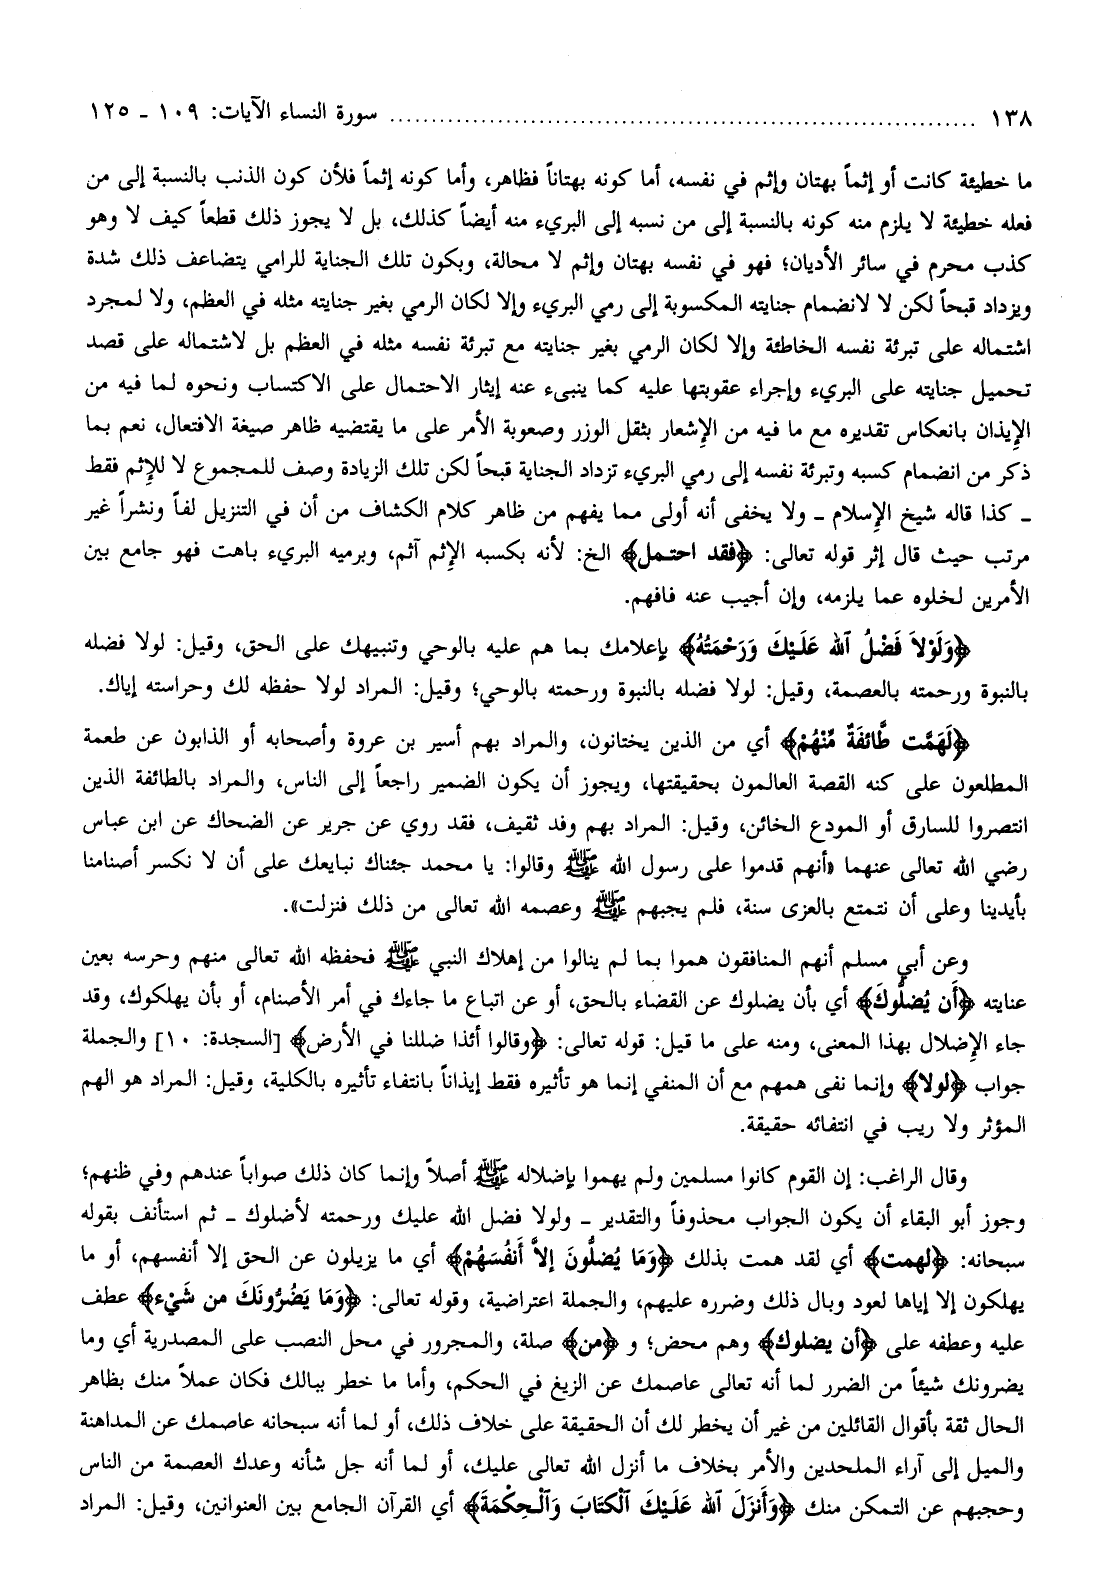 ١٣٨ ........................................ سورة النساء الآيات: ١٠٩ ـ ١٢٥
ما خطيئة كانت أو إثماً بهتان وإثم في نفسه، أما كونه بهتاناً فظاهر، وأما كونه إثماً فلأن كون الذنب بالنسبة إلى من
فعله خطيئة لا يلزم منه كونه بالنسبة إلى من نسبه إلى البريء منه أيضاً كذلك، بل لا يجوز ذلك قطعاً كيف لا وهو
كذب محرم في سائر الأديان؛ فهو في نفسه بهتان وإثم لا محالة، وبكون تلك الجناية للرامي يتضاعف ذلك شدة
ويزداد قبحاً لكن لا لانضمام جنايته المكسوبة إلى رمي البريء وإلا لكان الرمي بغير جنايته مثله في العظم، ولا لمجرد
اشتماله على تبرئة نفسه الخاطئة وإلا لكان الرمي بغير جنايته مع تبرئة نفسه مثله في العظم بل لاشتماله على قصد
تحميل جنايته على البريء وإجراء عقوبتها عليه كما ينبىء عنه إيثار الاحتمال على الاكتساب ونحوه لما فيه من
الإيذان بانعكاس تقديره مع ما فيه من الإشعار بثقل الوزر وصعوبة الأمر على ما يقتضيه ظاهر صيغة الافتعال، نعم بما
ذكر من انضمام كسبه وتبرئة نفسه إلى رمي البريء تزداد الجناية قبحاً لكن تلك الزيادة وصف للمجموع لا للإثم فقط
ـ كذا قاله شيخ الإسلام ـ ولا يخفى أنه أولى مما يفهم من ظاهر كلام الكشاف من أن في التنزيل لفاً ونشراً غير
مرتب حيث قال إثر قوله تعالى: ﴿فقد احتمل﴾ الخ: لأنه بكسبه الإثم آثم، وبرميه البريء باهت فهو جامع بين
الأمرين لخلوه عما يلزمه، وإن أجيب عنه فافهم.
﴿وَلَوْلاَ فَضْلُ ٱلله عَلَيْكَ وَرَحْمَتُهُ﴾ بإعلامك بما هم عليه بالوحي وتنبيهك على الحق، وقيل: لولا فضله
بالنبوة ورحمته بالعصمة، وقيل: لولا فضله بالنبوة ورحمته بالوحي؛ وقيل: المراد لولا حفظه لك وحراسته إياك.
﴿لَهَمَّت طَّائفَةٌ مِّنْهُمْ﴾ أي من الذين يختانون، والمراد بهم أسير بن عروة وأصحابه أو الذابون عن طعمة
المطلعون على كنه القصة العالمون بحقيقتها، ويجوز أن يكون الضمير راجعاً إلى الناس، والمراد بالطائفة الذين
انتصروا للسارق أو المودع الخائن، وقيل: المراد بهم وفد ثقيف، فقد روي عن جرير عن الضحاك عن ابن عباس
رضي الله تعالى عنهما «أنهم قدموا على رسول الله ﷺ وقالوا: يا محمد جئناك نبايعك على أن لا نكسر أصنامنا
بأيدينا وعلى أن نتمتع بالعزى سنة، فلم يجبهم ﷺ وعصمه الله تعالى من ذلك فنزلت».
وعن أبي مسلم أنهم المنافقون هموا بما لم ينالوا من إهلاك النبي ﷺ فحفظه الله تعالى منهم وحرسه بعين
عنايته ﴿أَن يُضلُّوكَ﴾ أي بأن يضلوك عن القضاء بالحق، أو عن اتباع ما جاءك في أمر الأصنام، أو بأن يهلكوك، وقد
جاء الإضلال بهذا المعنى، ومنه على ما قيل: قوله تعالى: ﴿وقالوا أئذا ضللنا في الأرض﴾ [السجدة: ١٠] والجملة
جواب ﴿لولا﴾ وإنما نفى همهم مع أن المنفي إنما هو تأثيره فقط إيذاناً بانتفاء تأثيره بالكلية، وقيل: المراد هو الهم
المؤثر ولا ريب في انتفائه حقيقة.
وقال الراغب: إن القوم كانوا مسلمين ولم يهموا بإضلاله ﷺ أصلاً وإنما كان ذلك صواباً عندهم وفي ظنهم؛
وجوز أبو البقاء أن يكون الجواب محذوفاً والتقدير ـ ولولا فضل الله عليك ورحمته لأضلوك ـ ثم استأنف بقوله
سبحانه: ﴿لهمت﴾ أي لقد همت بذلك ﴿وَمَا يُضلُّونَ إلاَّ أَنفُسَهُمْ﴾ أي ما يزيلون عن الحق إلا أنفسهم، أو ما
يهلكون إلا إياها لعود وبال ذلك وضرره عليهم، والجملة اعتراضية، وقوله تعالى: ﴿وَمَا يَضُرُّونَكَ من شَيْء﴾ عطف
عليه وعطفه على ﴿أن يضلوك﴾ وهم محض؛ و ﴿من﴾ صلة، والمجرور في محل النصب على المصدرية أي وما
يضرونك شيئاً من الضرر لما أنه تعالى عاصمك عن الزيغ في الحكم، وأما ما خطر ببالك فكان عملاً منك بظاهر
الحال ثقة بأقوال القائلين من غير أن يخطر لك أن الحقيقة على خلاف ذلك، أو لما أنه سبحانه عاصمك عن المداهنة
والميل إلى آراء الملحدين والأمر بخلاف ما أنزل الله تعالى عليك، أو لما أنه جل شأنه وعدك العصمة من الناس
وحجبهم عن التمكن منك ﴿وَأَنزَلَ ٱلله عَلَيْكَ ٱلْكتَابَ وَٱلْحِكْمَةَ﴾ أي القرآن الجامع بين العنوانين، وقيل: المراد